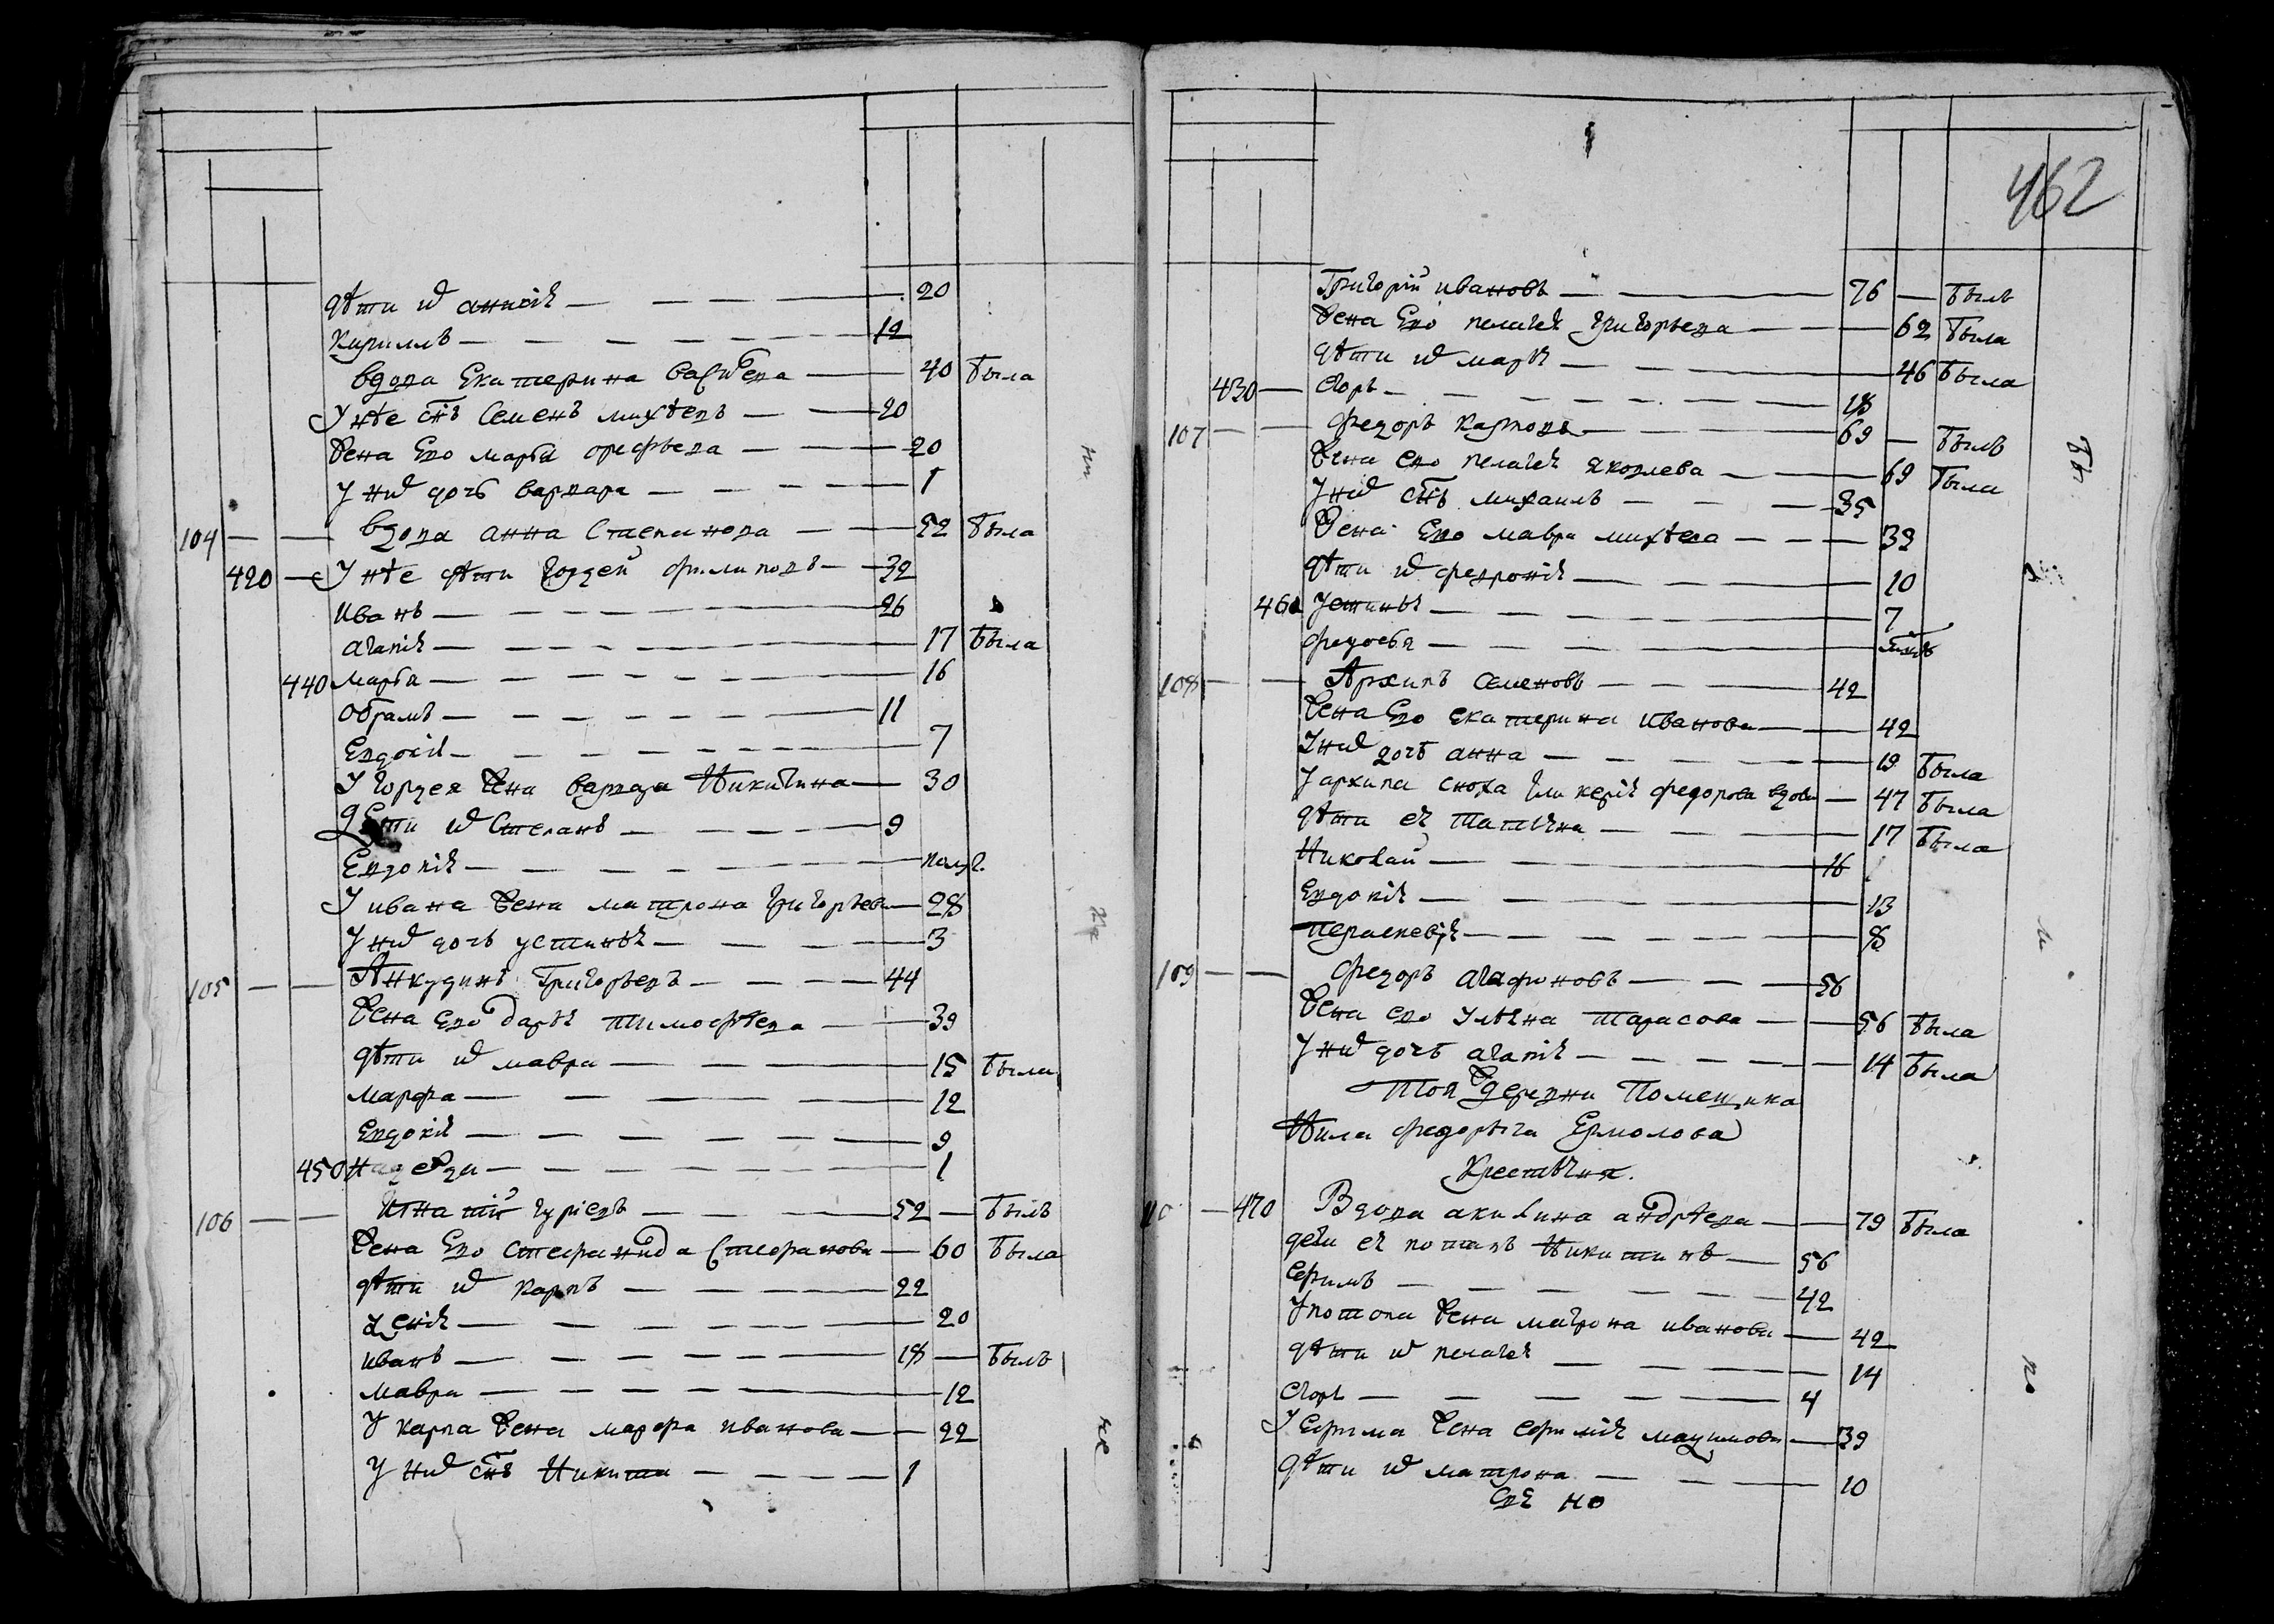 дѣти и͡х анисiѧ 20
Кириллъ 12
вдова Екатерина Васи͡льева 40 была
У нѣе сн҃ъ Семенъ михѣевъ 20
Жена Ево марѳа орефьева 20
У ни͡х дочь варвара 1
104 вдова анна Степанова 52 была
420 У нѣе дѣти гордей филиповъ 32
Иванъ 26
агапiѧ 17 была
440 Марѳа 16
Обрамъ 11
Евдокiѧ 7
У гордея жена варвара Никитина 30
Дѣти и͡х Степанъ 9
Евдокiѧ полуг.
У ивана жена матрона григорьева 28
У ни͡х дочь устиньѧ 3
105 Анкудинъ Григорьевъ 44
Жена ево дарьѧ тимофѣева 39
дѣти и͡х мавра 15 была
марфа 12
Евдокiѧ 9
450 Надежда 1
106 Игнатiй гурiевъ 52 былъ
Жена Ево стефанида Стефанова 60 была
дѣти и͡х карпъ 22
ѯенiѧ 20
иванъ 18 былъ
мавра 12
У карпа жена марфа иванова 22
У ни͡х сн҃ъ Никита 1
462
Григорiй ивановъ 76 былъ
Жена Ево пелагеѧ григорьева 62 была
дѣти и͡х марьѧ 46 была
430 егоръ 18
107 федоръ карповъ 69 былъ
Жена ево пелагеѧ яковлева 69 была
У ни͡х сн҃ъ михаилъ 35
Жена Ево мавра михѣева 39
дѣти и͡х февронiѧ 10
460 Устиньѧ 7
федосья
108 Архипъ семеновъ 42
Жена Ево екатерина иванова 42
У ни͡х дочь анна 19 была
У архипа сноха гликерiѧ федорова вдова 47 была
дѣти еѧ татьѧна 17 была
Николай 16
Евдокiѧ 13
Параскевiѧ 8
109 федоръ агафоновъ 56
Жена ево ульѧна тарасова 56 была
У ни͡х дочь агапiѧ 14 была
Той ж деревни Помещика
Нила федорыча Ермолова
Крестьѧня.
110 470 Вдова акилина андрѣева 79 была
дети еѧ потапъ Никитинъ 56
Ефимъ 42
У потапа жена матрона иванова 42
дѣти и͡х пелагеѧ 14
егоръ 4
У Ефима жена ефимiѧ маѯимова 39
дѣти и͡х матрона 10